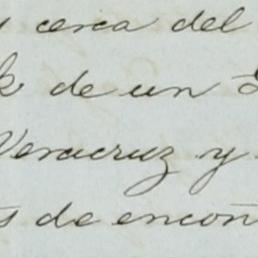 y cerca del
de un
Veracruz y
de encon